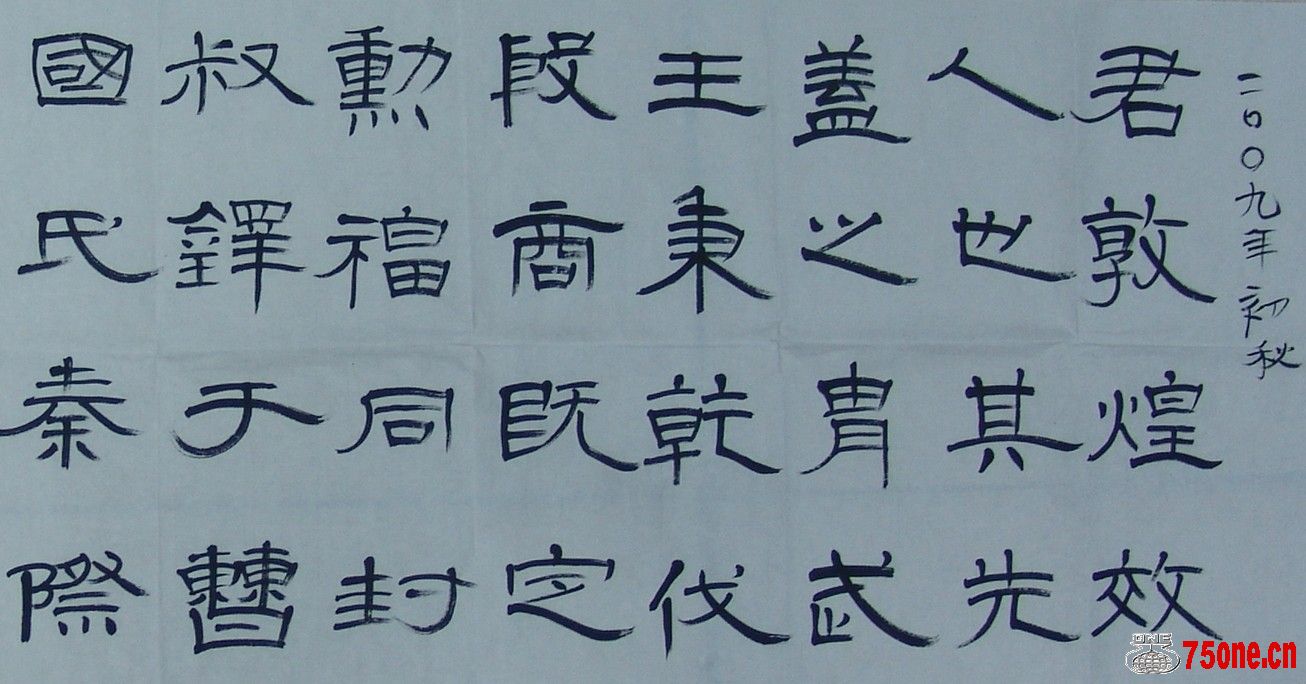 二〇〇九年初秋
君敦煌效
人也其先
蓋之胄武
王秉乾伐
殷商既定
勲福同封
叔鐸于曹
國氏秦際
75one.cn
ONE